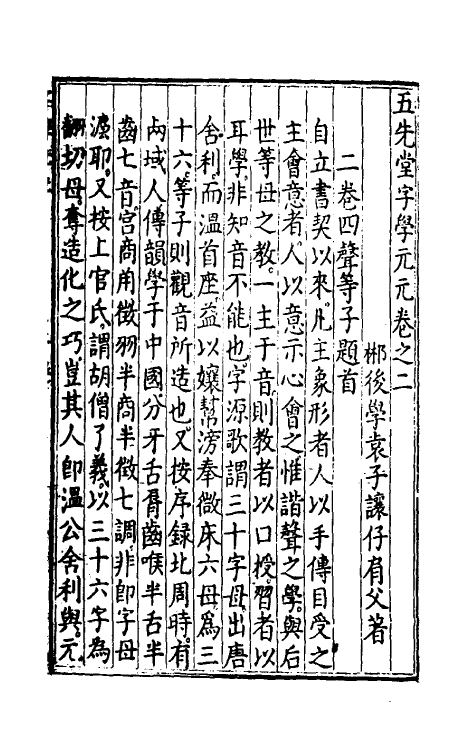 五先堂字學元元卷之二
郴後學袁子讓仔肩父著
二卷四聲等子題首
自立書契以來凡主象形者人以手傳目受之
主會意者人以意示心會之惟諧聲之學與后
世等母之教一主于音則教者以口授習者以
耳學非知音不能也字源歌謂三十字母出唐
舍利而溫首座益以孃幫滂奉微床六母為三
十六等子則觀音所造也又按序録北周時有
西域人傳韻學于中國分牙舌脣齒喉半舌半
齒七音宮商角徵羽半商半徵七調非卽字母
濫耶又按上官氏謂胡僧了義以三十六字為
翻切母奪造化之巧豈其人卽溫公舍利與元